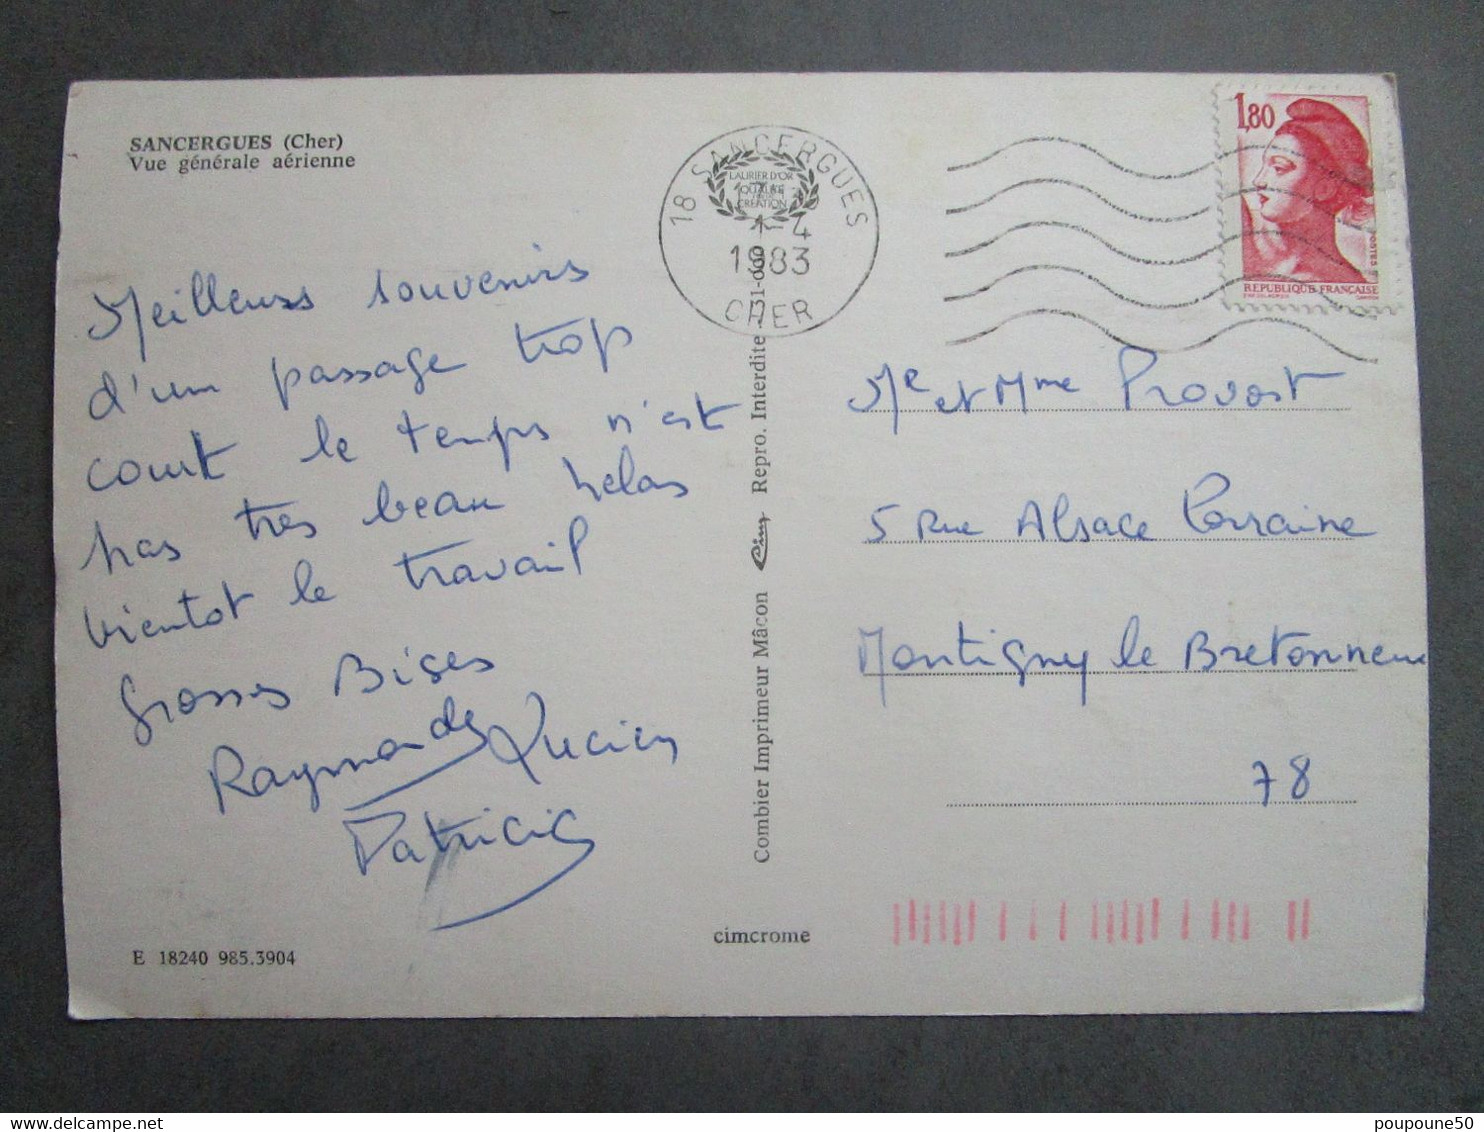 SANCERGUES (Cher)
Vue générale aérienne
18 SANCERGUES
LAURIER D'OR
QUALITÉ
CRÉATION
1-4
1983
CHER
1,80
POSTES
REPUBLIQUE FRANÇAISE
Meilleurs souvenirs
d'un passage trop
court le temps n'est
pas très beau helas
bientot le travail
Grosses Bises
Raymonde Lucien
Patricia
Mr et Mme Provost
5 Rue Alsace Lorraine
Montigny le Bretonneux
78
Combier Imprimeur Mâcon Cim Repro. Interdite
cimcrome
E 18240 985.3904
poupoune50